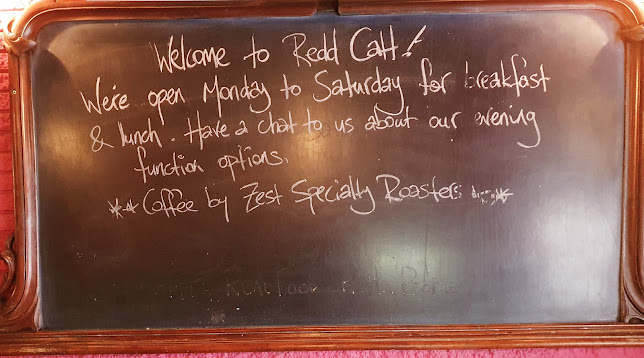 Welcome to Redd Catt!
We're open Monday to Saturday for breakfast
& lunch. Have a chat to us about our evening
function options.
** Coffee by Zest Specialty Roasters **